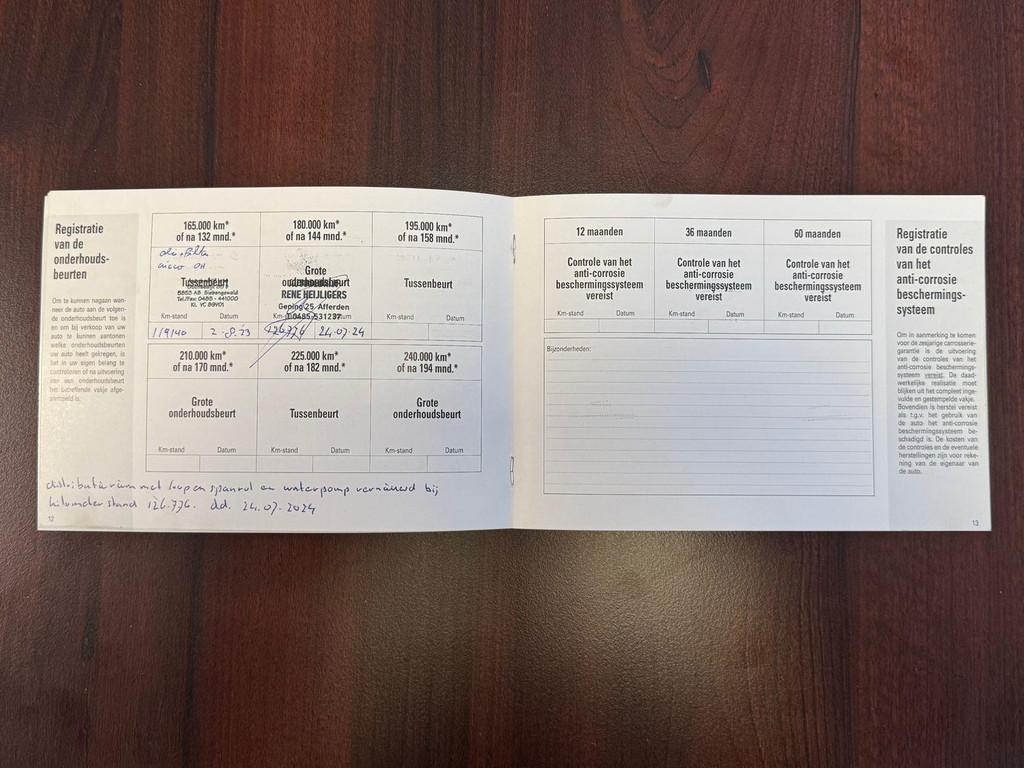 Registratie
van de
onderhouds-
beurten
Om te kunnen nagaan wan-
neer de auto aan de volgen-
de onderhoudsbeurt toe is
en om bij verkoop van uw
auto te kunnen aantonen
welke onderhoudsbeurten
uw auto heeft gekregen, is
het in uw eigen belang te
controleren of na uitvoering
van een onderhoudsbeurt
het betreffende vakje afge-
stempeld is.
165.000 km*
of na 132 mnd.*
Tussenbeurt
5853 AB Siebengewald
Tel./Fax: 0485 - 441000
Km-stand Datum
119140 2-8-'23
180.000 km*
of na 144 mnd.*
Grote
onderhoudsbeurt
RENE HEIJLIGERS
Geping 25 Afferden
T.0485-531237
Km-stand Datum
126.776 24.07-24
195.000 km*
of na 158 mnd.*
Tussenbeurt
Km-stand Datum
210.000 km*
of na 170 mnd.*
Grote
onderhoudsbeurt
Km-stand Datum
225.000 km*
of na 182 mnd.*
Tussenbeurt
Km-stand Datum
240.000 km*
of na 194 mnd.*
Grote
onderhoudsbeurt
Km-stand Datum
distributieriem met loop en spanrol en waterpomp vernieuwd bij
kilometer stand 126.776. dd. 24.07.2024
12
12 maanden
Controle van het
anti-corrosie
beschermingssysteem
vereist
Km-stand Datum
36 maanden
Controle van het
anti-corrosie
beschermingssysteem
vereist
Km-stand Datum
60 maanden
Controle van het
anti-corrosie
beschermingssysteem
vereist
Km-stand Datum
Bijzonderheden:
Registratie
van de controles
van het
anti-corrosie
beschermings-
systeem
Om in aanmerking te komen
voor de zesjarige carrosserie-
garantie is de uitvoering
van de controles van het
anti-corrosie beschermings-
systeem vereist. De daad-
werkelijke realisatie moet
blijken uit het compleet inge-
vulde en gestempelde vakje.
Bovendien is herstel vereist
als t.g.v. het gebruik van
de auto het anti-corrosie
beschermingssysteem be-
schadigd is. De kosten van
de controles en de eventuele
herstellingen zijn voor reke-
ning van de eigenaar van
de auto.
13